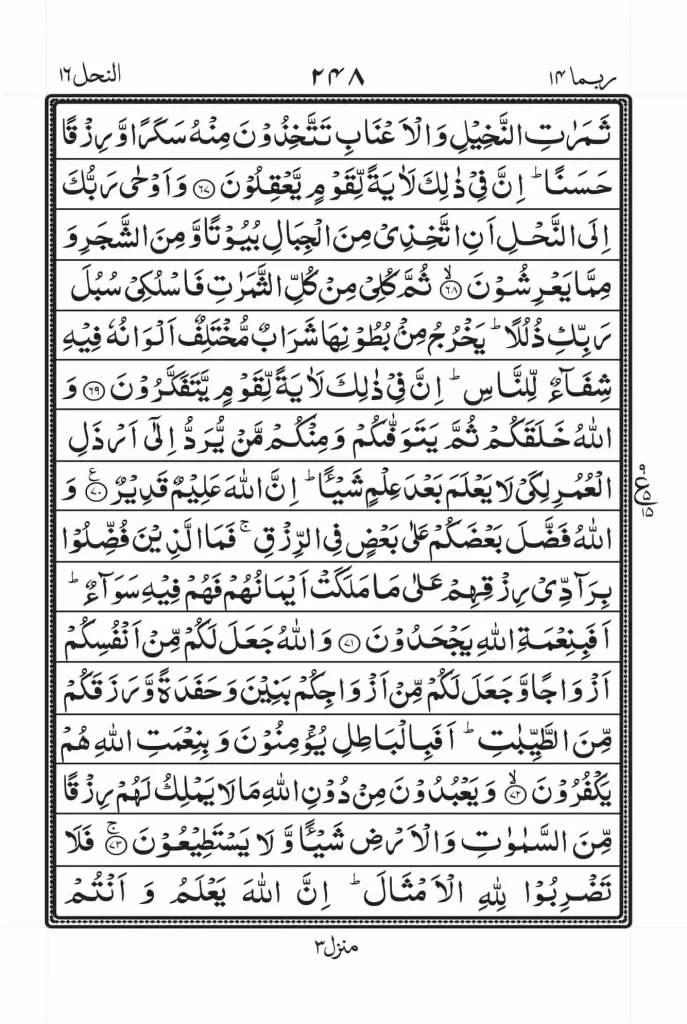 ربما ١٤ ٢٤٨ النحل ١٦
ثَمَرٰتِ النَّخِيْلِ وَالْاَعْنَابِ تَتَّخِذُوْنَ مِنْهُ سَكَرًا وَّرِزْقًا
حَسَنًا ؕ اِنَّ فِيْ ذٰلِكَ لَاٰيَةً لِّقَوْمٍ يَّعْقِلُوْنَ ﴿٦٧﴾ وَاَوْحٰى رَبُّكَ
اِلَى النَّحْلِ اَنِ اتَّخِذِيْ مِنَ الْجِبَالِ بُيُوْتًا وَّمِنَ الشَّجَرِ وَ
مِمَّا يَعْرِشُوْنَ ۙ﴿٦٨﴾ ثُمَّ كُلِيْ مِنْ كُلِّ الثَّمَرٰتِ فَاسْلُكِيْ سُبُلَ
رَبِّكِ ذُلُلًا ؕ يَخْرُجُ مِنْۢ بُطُوْنِهَا شَرَابٌ مُّخْتَلِفٌ اَلْوَانُهٗ فِيْهِ
شِفَآءٌ لِّلنَّاسِ ؕ اِنَّ فِيْ ذٰلِكَ لَاٰيَةً لِّقَوْمٍ يَّتَفَكَّرُوْنَ ﴿٦٩﴾ وَ
اللّٰهُ خَلَقَكُمْ ثُمَّ يَتَوَفّٰىكُمْ وَمِنْكُمْ مَّنْ يُّرَدُّ اِلٰٓى اَرْذَلِ
الْعُمُرِ لِكَيْ لَا يَعْلَمَ بَعْدَ عِلْمٍ شَيْـًٔا ؕ اِنَّ اللّٰهَ عَلِيْمٌ قَدِيْرٌ ﴿٧٠﴾ وَ
اللّٰهُ فَضَّلَ بَعْضَكُمْ عَلٰى بَعْضٍ فِي الرِّزْقِ ۚ فَمَا الَّذِيْنَ فُضِّلُوْا
بِرَآدِّيْ رِزْقِهِمْ عَلٰى مَا مَلَكَتْ اَيْمَانُهُمْ فَهُمْ فِيْهِ سَوَآءٌ ؕ
اَفَبِنِعْمَةِ اللّٰهِ يَجْحَدُوْنَ ﴿٧١﴾ وَاللّٰهُ جَعَلَ لَكُمْ مِّنْ اَنْفُسِكُمْ
اَزْوَاجًا وَّجَعَلَ لَكُمْ مِّنْ اَزْوَاجِكُمْ بَنِيْنَ وَحَفَدَةً وَّرَزَقَكُمْ
مِّنَ الطَّيِّبٰتِ ؕ اَفَبِالْبَاطِلِ يُؤْمِنُوْنَ وَبِنِعْمَتِ اللّٰهِ هُمْ
يَكْفُرُوْنَ ۙ﴿٧٢﴾ وَيَعْبُدُوْنَ مِنْ دُوْنِ اللّٰهِ مَا لَا يَمْلِكُ لَهُمْ رِزْقًا
مِّنَ السَّمٰوٰتِ وَالْاَرْضِ شَيْـًٔا وَّلَا يَسْتَطِيْعُوْنَ ۚ﴿٧٣﴾ فَلَا
تَضْرِبُوْا لِلّٰهِ الْاَمْثَالَ ؕ اِنَّ اللّٰهَ يَعْلَمُ وَاَنْتُمْ
منزل ٣